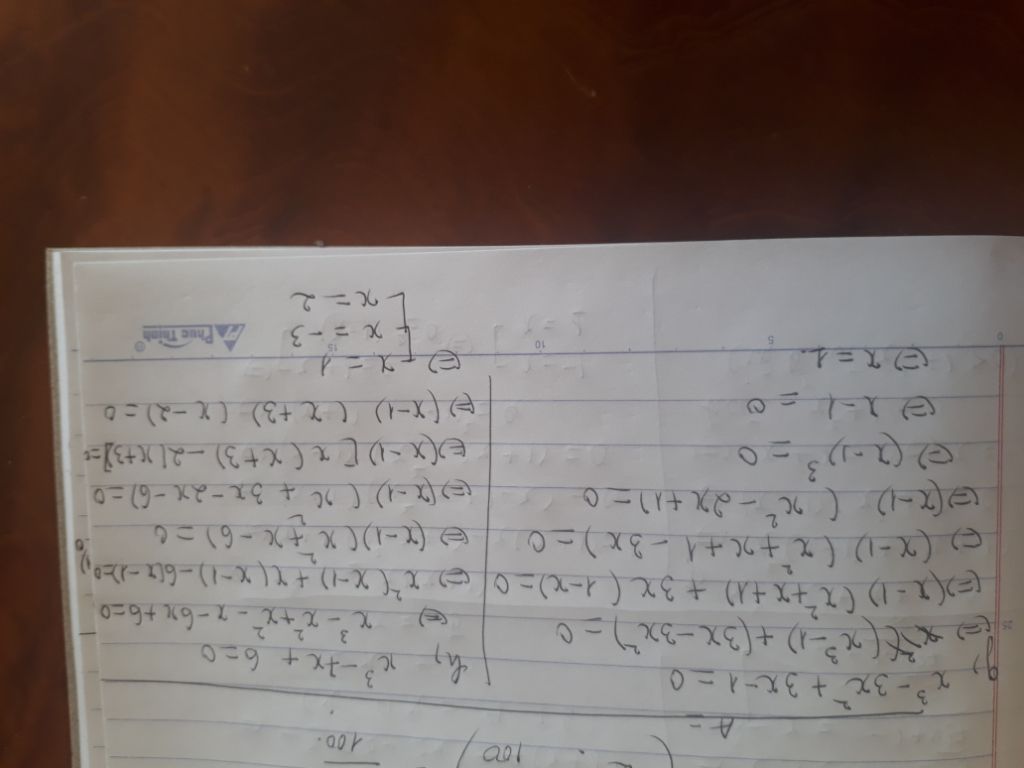 ( 100 ) 100.
A =
g, x³ - 3x² + 3x - 1 = 0
(=) (x³ - 1) + (3x - 3x²) = 0
(=) (x - 1) (x² + x + 1) + 3x (1 - x) = 0
(=) (x - 1) (x² + x + 1 - 3x) = 0
(=) (x - 1) (x² - 2x + 1) = 0
(=) (x - 1)³ = 0
(=) x - 1 = 0
(=) x = 1
h, x³ - 7x + 6 = 0
(=) x³ - x² + x² - x - 6x + 6 = 0
(=) x² (x - 1) + x (x - 1) - 6(x - 1) = 0
(=) (x - 1) (x² + x - 6) = 0
(=) (x - 1) (x² + 3x - 2x - 6) = 0
(=) (x - 1) [x (x + 3) - 2(x + 3)] =
(=) (x - 1) (x + 3) (x - 2) = 0
(=) [ x = 1
x = -3
x = 2
0 5 10 15
25
Phuc Thinh